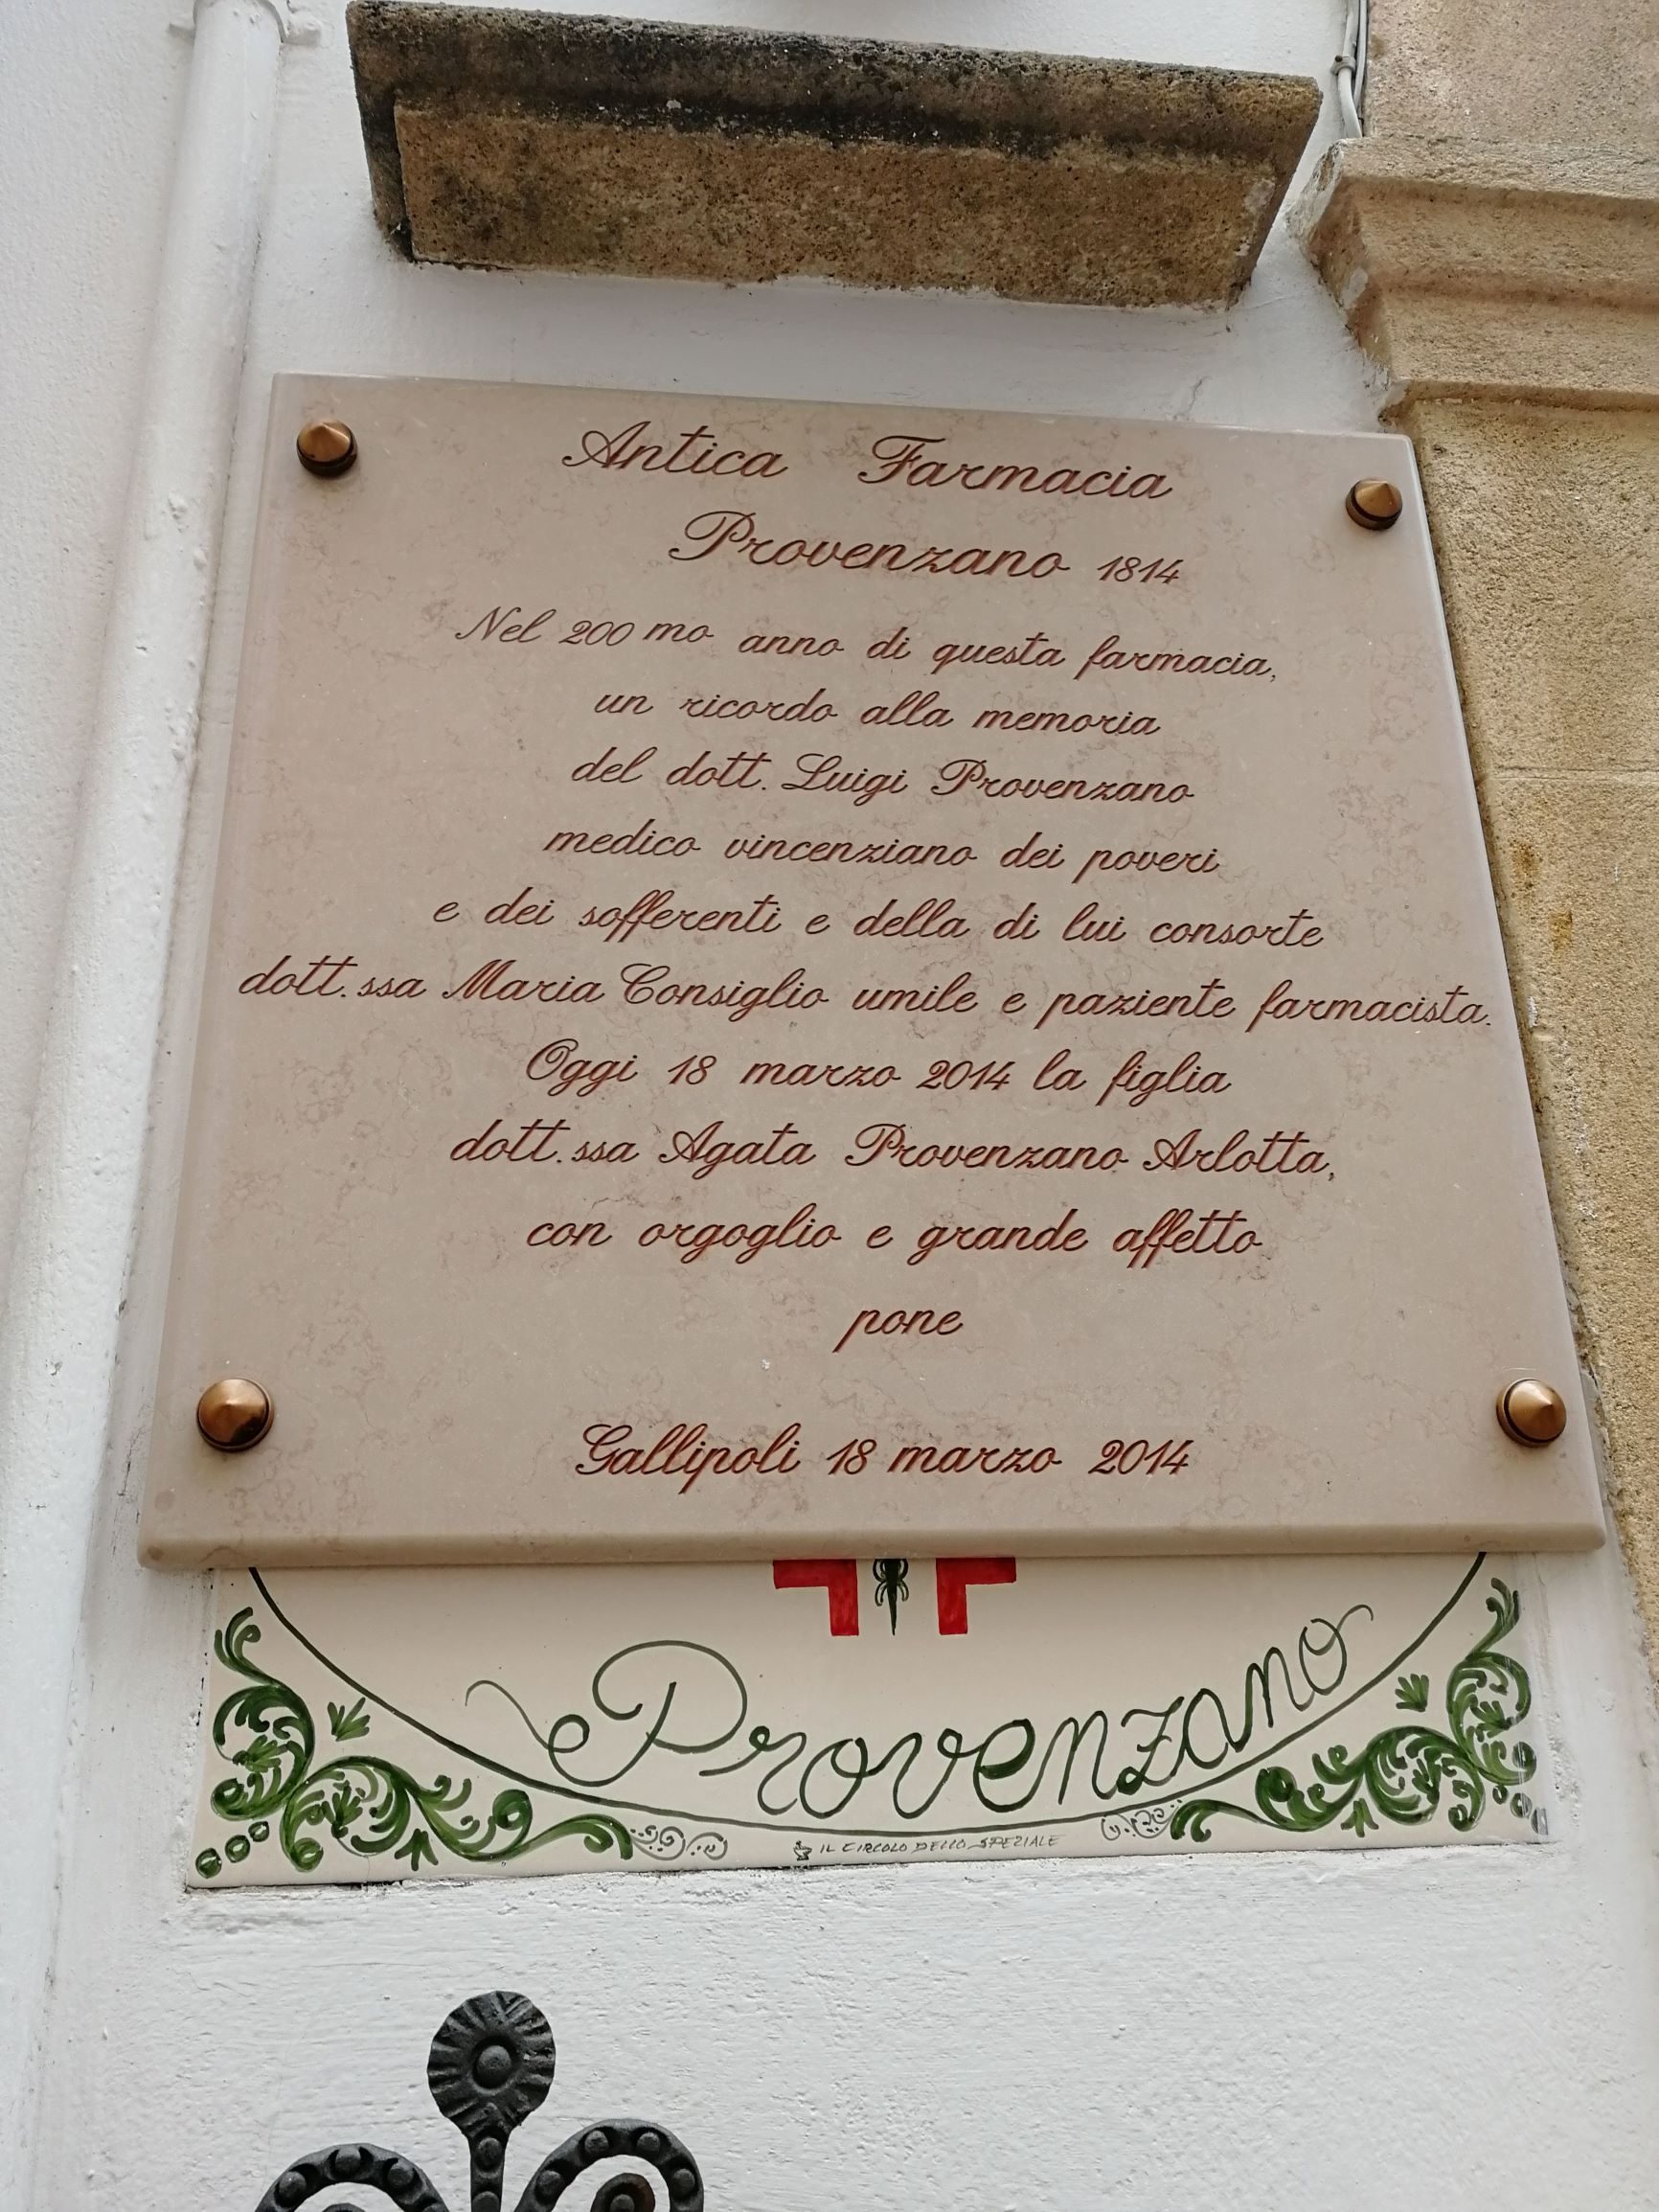 Antica Farmacia
Provenzano 1814
Nel 200mo anno di questa farmacia,
un ricordo alla memoria
del dott. Luigi Provenzano
medico vincenziano dei poveri
e dei sofferenti e della di lui consorte
dott.ssa Maria Consiglio umile e paziente farmacista.
Oggi 18 marzo 2014 la figlia
dott.ssa Agata Provenzano Arlotta,
con orgoglio e grande affetto
pone
Gallipoli 18 marzo 2014
Provenzano
IL CIRCOLO DELLO SPEZIALE